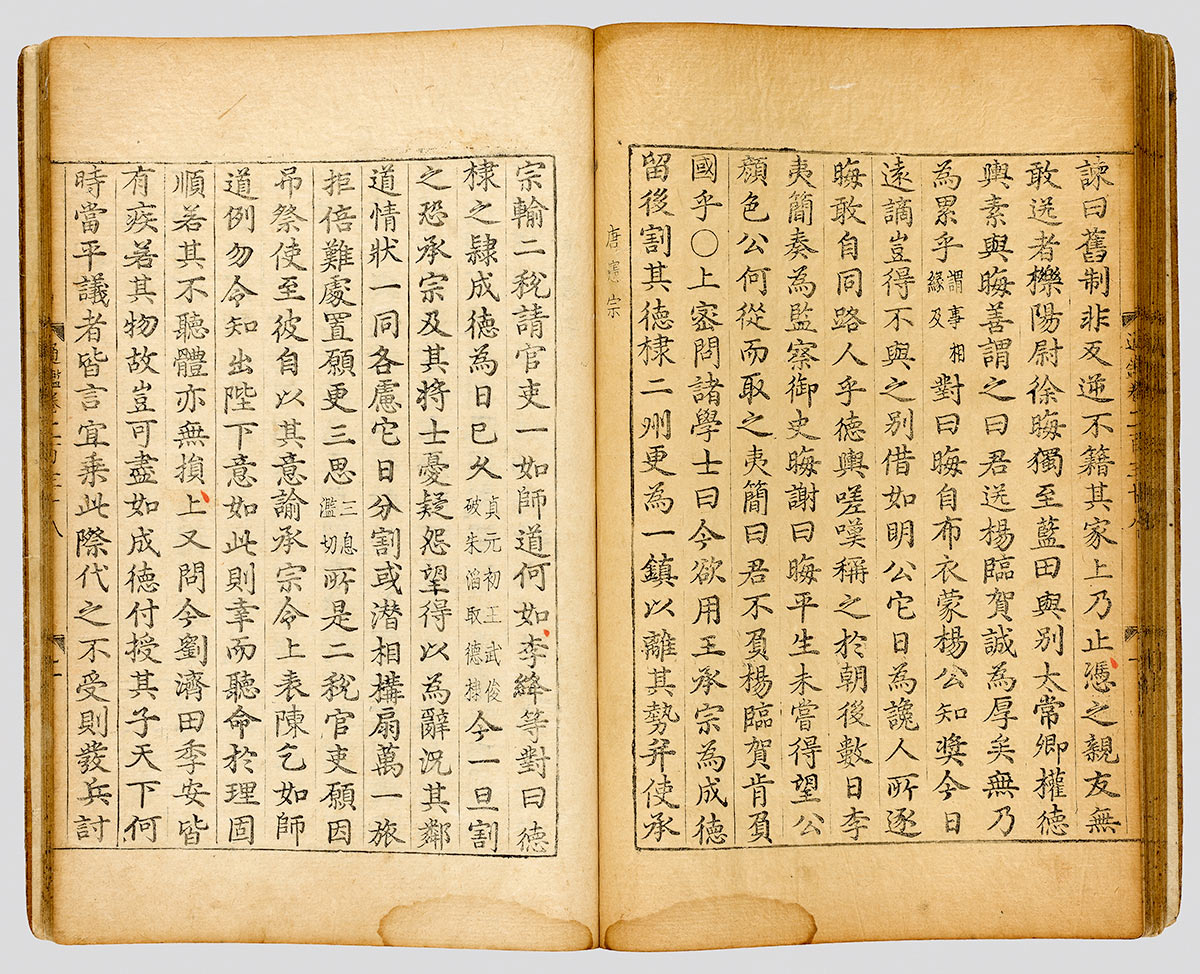 通鑑卷二百三十八
諫曰舊制非反逆不籍其家上乃止憑之親友無
敢送者櫟陽尉徐晦獨至藍田與別太常卿權德
輿素與晦善謂之曰君送楊臨賀誠為厚矣無乃
為累乎謂事相緣及對曰晦自布衣蒙楊公知奬今日
遠謫豈得不與之別借如明公它日為讒人所逐
晦敢自同路人乎德輿嗟嘆稱之於朝後數日李
夷簡奏為監察御史晦謝曰晦平生未嘗得望公
顏色公何從而取之夷簡曰君不負楊臨賀肯負
國乎〇上密問諸學士曰今欲用王承宗為成德
留後割其德棣二州更為一鎮以離其勢并使承
唐憲宗
宗輸二稅請官吏一如師道何如李絳等對曰德
棣之隸成德為日已久貞元初王武俊破朱滔取德棣今一旦割
之恐承宗及其將士憂疑怨望得以為辭況其鄰
道情狀一同各慮它日分割或潜相搆扇萬一旅
拒倍難處置願更三思三息濫切所是二稅官吏願因
弔祭使至彼自以其意諭承宗令上表陳乞如師
道例勿令知出陛下意如此則幸而聽命於理固
順若其不聽體亦無損上又問今劉濟田季安皆
有疾若其物故豈可盡如成德付授其子天下何
時當平議者皆言宜乘此際代之不受則發兵討
通鑑卷二百三十八